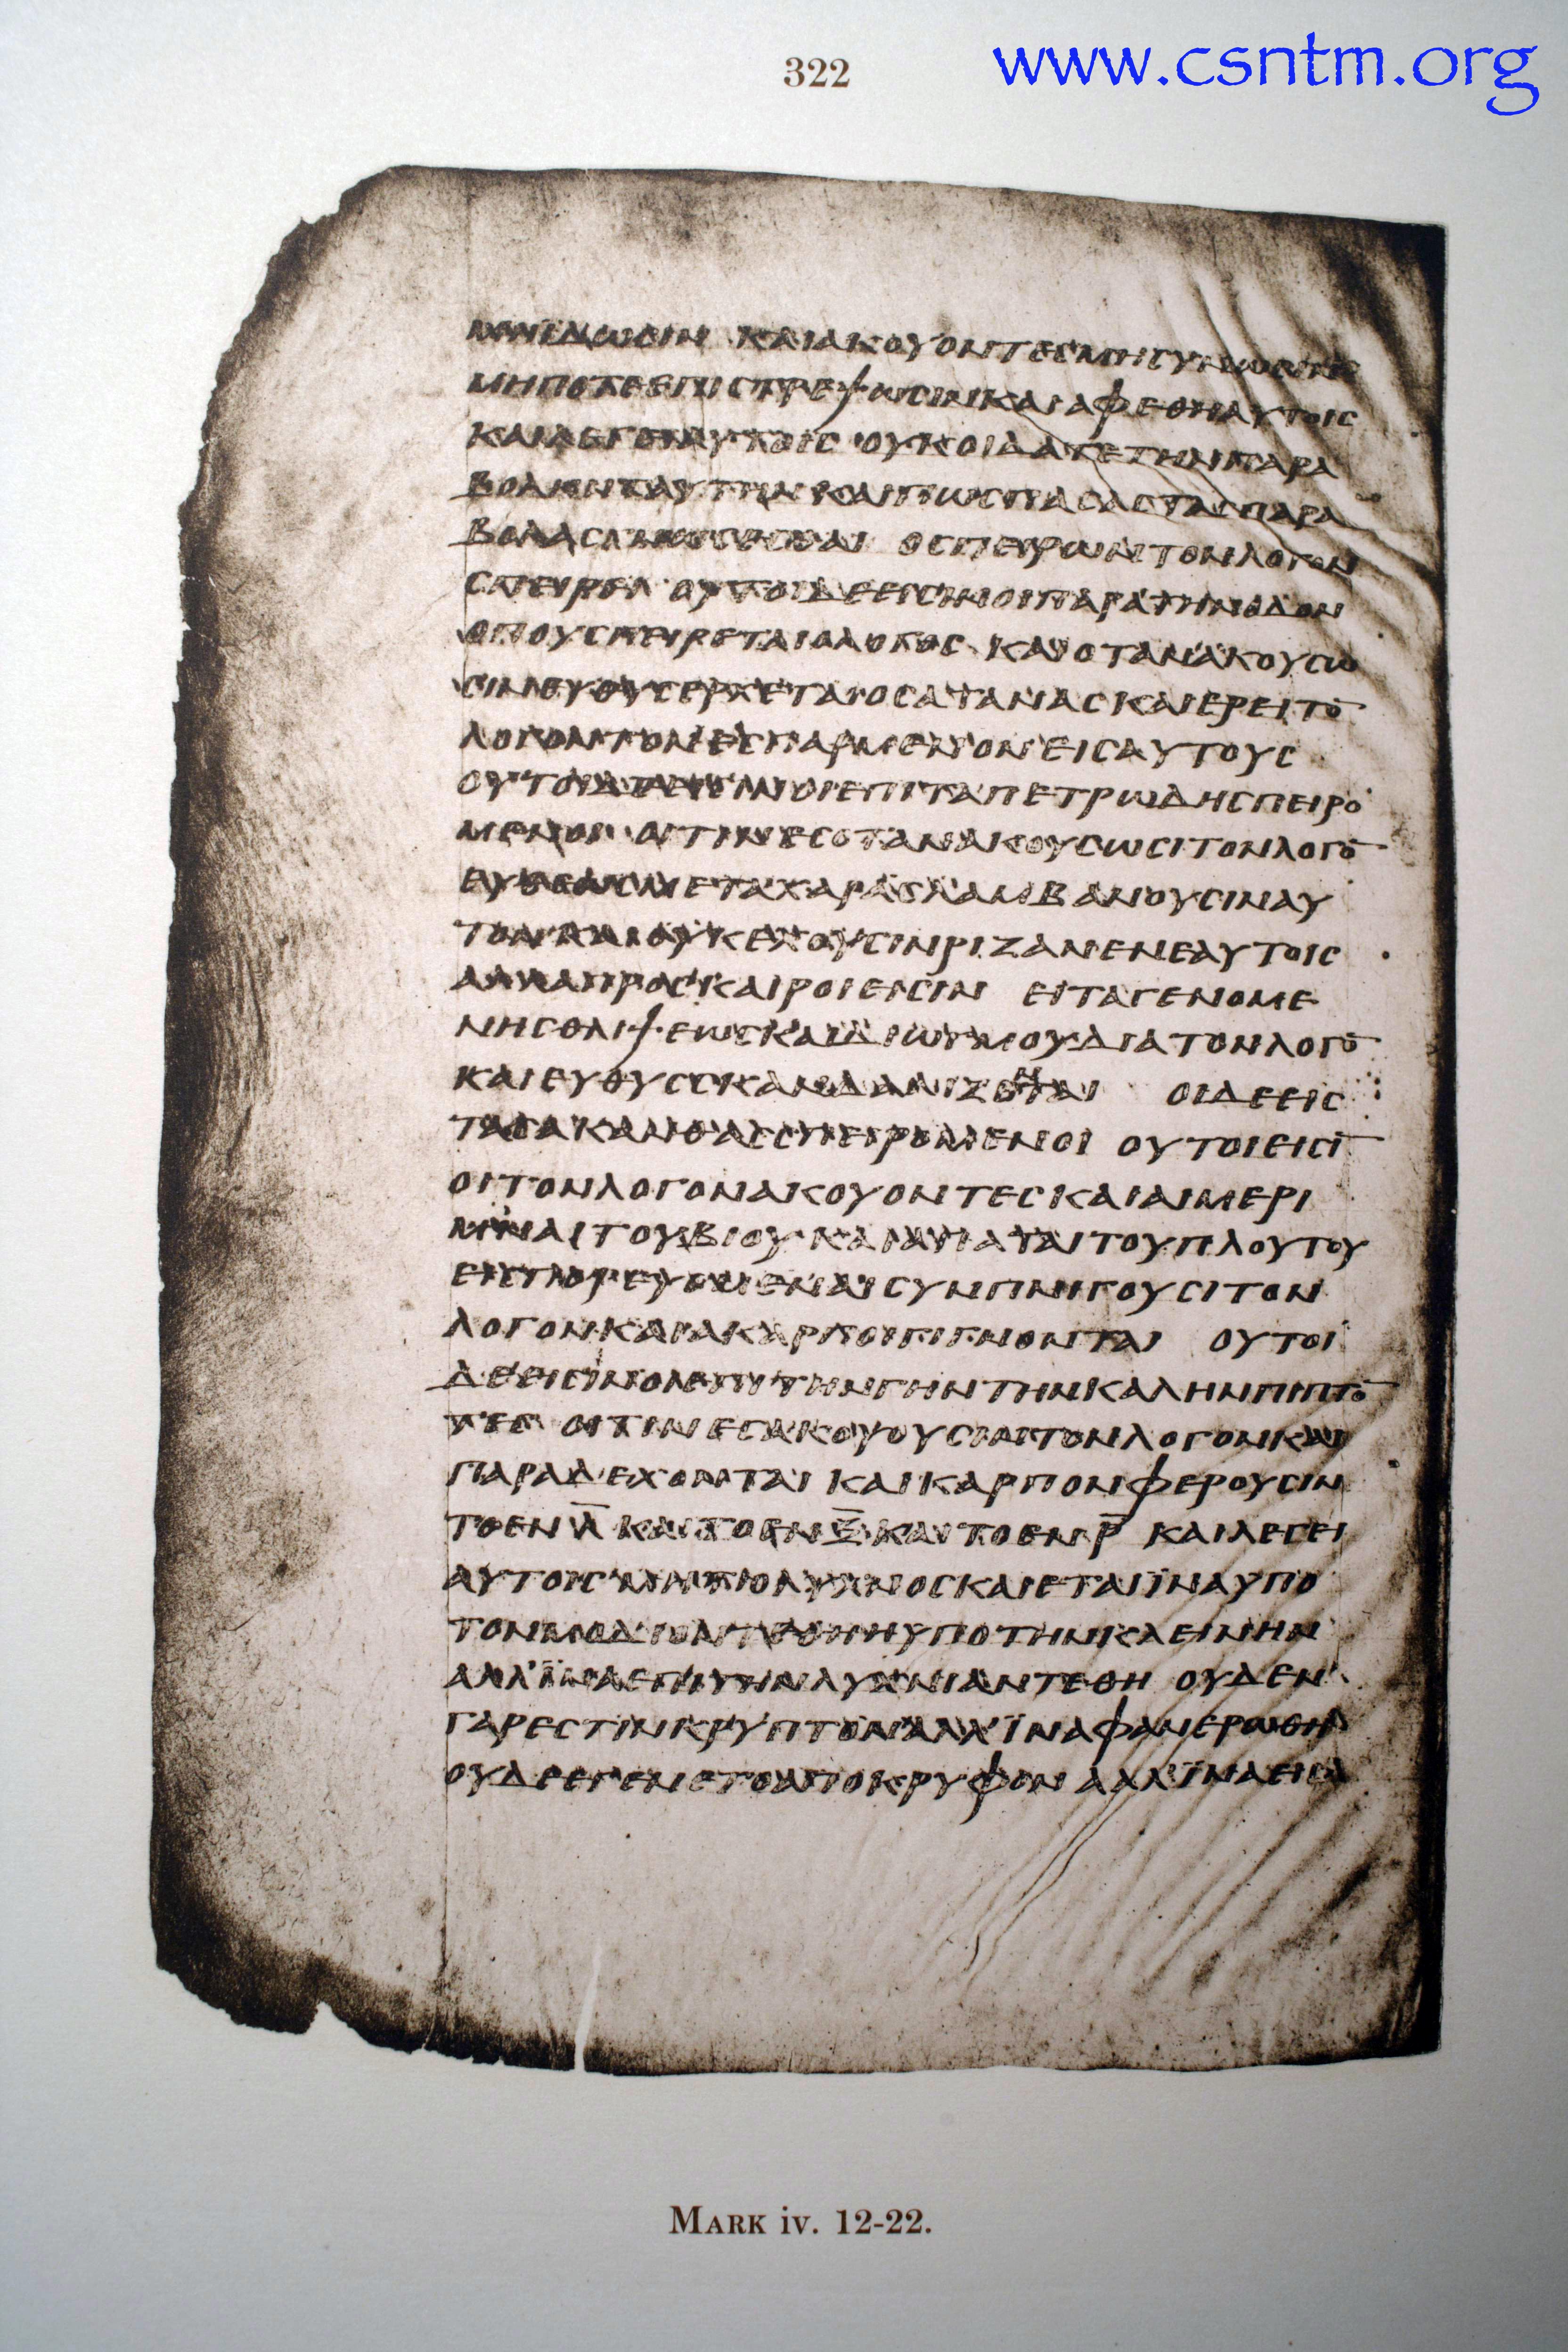 322
www.csntm.org
ΚΑΙΑΚΟΥΟΝΤΕCΜΗCΥΝ
ΜΗΠΟΤΕΕΠΙCΤΡΕΨΩCΙΝΚΑΙΑΦΕΘΗΑΥΤΟΙC
ΚΑΙΛΕΓΕΙΑΥΤΟΙC ΟΥΚΟΙΔΑΤΕΤΗΝΠΑΡΑ
ΒΟΛΗΝΤΑΥΤΗΝΚΑΙΠΩCΠΑCΑCΤΑCΠΑΡΑ
ΒΟΛΑC ΟCΠΕΙΡΩΝΤΟΝΛΟΓΟΝ
CΠΕΙΡΕΙ ΟΥΤΟΙΔΕΕΙCΙΝΟΙΠΑΡΑΤΗΝΟΔΟΝ
ΟΠΟΥCΠΕΙΡΕΤΑΙΟΛΟΓΟC ΚΑΙΟΤΑΝΑΚΟΥCΩ
CΙΝΕΥΘΥCΕΡΧΕΤΑΙΟCΑΤΑΝΑCΚΑΙΕΡΕΙΤΟ̅
ΛΟΓΟΝΤΟΝΕCΠΑΡΜΕΝΟΝΕΙCΑΥΤΟΥC
ΟΥΤΟΙ ΟΙΕΠΙΤΑΠΕΤΡΩΔΗCΠΕΙΡΟ
ΜΕΝΟΙ ΟΙΤΙΝΕCΟΤΑΝΑΚΟΥCΩCΙΤΟΝΛΟΓΟ̅
ΕΥΘΕΩCΜΕΤΑΧΑΡΑCΛΑΜΒΑΝΟΥCΙΝΑΥ
ΤΟΝΚΑΙΟΥΚΕΧΟΥCΙΝΡΙΖΑΝΕΝΕΑΥΤΟΙC
ΑΛΛΑΠΡΟCΚΑΙΡΟΙΕΙCΙΝ ΕΙΤΑΓΕΝΟΜΕ
ΝΗCΘΛΙΨΕΩCΚΑΙΔΙΩΓΜΟΥΔΙΑΤΟΝΛΟΓΟ̅
ΚΑΙΕΥΘΥC ΟΙΔΕΕΙC
ΤΑCΑΚΑΝΘΑCCΠΕΙΡΟΜΕΝΟΙ ΟΥΤΟΙΕΙCΙ̅
ΟΙΤΟΝΛΟΓΟΝΑΚΟΥΟΝΤΕCΚΑΙΑΙΜΕΡΙ
ΜΝΑΙΤΟΥΒΙΟΥΚΑΙΑΠΑΤΑΙΤΟΥΠΛΟΥΤΟΥ
ΕΙCΠΟΡΕΥΟΜΕΝΑΙCΥΝΠΝΙΓΟΥCΙΤΟΝ
ΛΟΓΟΝΚΑΙΑΚΑΡΠΟΙΓΙΓΝΟΝΤΑΙ ΟΥΤΟΙ
ΔΕΕΙCΙΝΟΙΕΠΙΤΗΝΓΗΝΤΗΝΚΑΛΗΝΠΙΠΤΟ̅
ΤΕC ΟΙΤΙΝΕCΑΚΟΥΟΥCΙΝΤΟΝΛΟΓΟΝΚΑΙ
ΠΑΡΑΔΕΧΟΝΤΑΙΚΑΙΚΑΡΠΟΝΦΕΡΟΥCΙΝ
ΤΟΕΝΛ̅ ΚΑΙΤΟΕΝΞ̅ΚΑΙΤΟΕΝΡ̅ ΚΑΙΛΕΓΕΙ
ΑΥΤΟΙCΜΗΤΙΟΛΥΧΝΟCΚΑΙΕΤΑΙΪΝΑΥΠΟ
ΤΟΝΜΟΔΙΟΝΤΕΘΗΗΥΠΟΤΗΝΚΛΕΙΝΗΝ
ΑΛΛΪΝΑΕΠΙΤΗΝΛΥΧΝΙΑΝΤΕΘΗ ΟΥΔΕΝ
ΓΑΡΕCΤΙΝΚΡΥΠΤΟΝΑΛΛΪΝΑΦΑΝΕΡΩΘΗ
ΟΥΔΕΕΓΕΝΕΤΟΑΠΟΚΡΥΦΟΝΑΛΛΪΝΑΕΙC
MARK iv. 12-22.